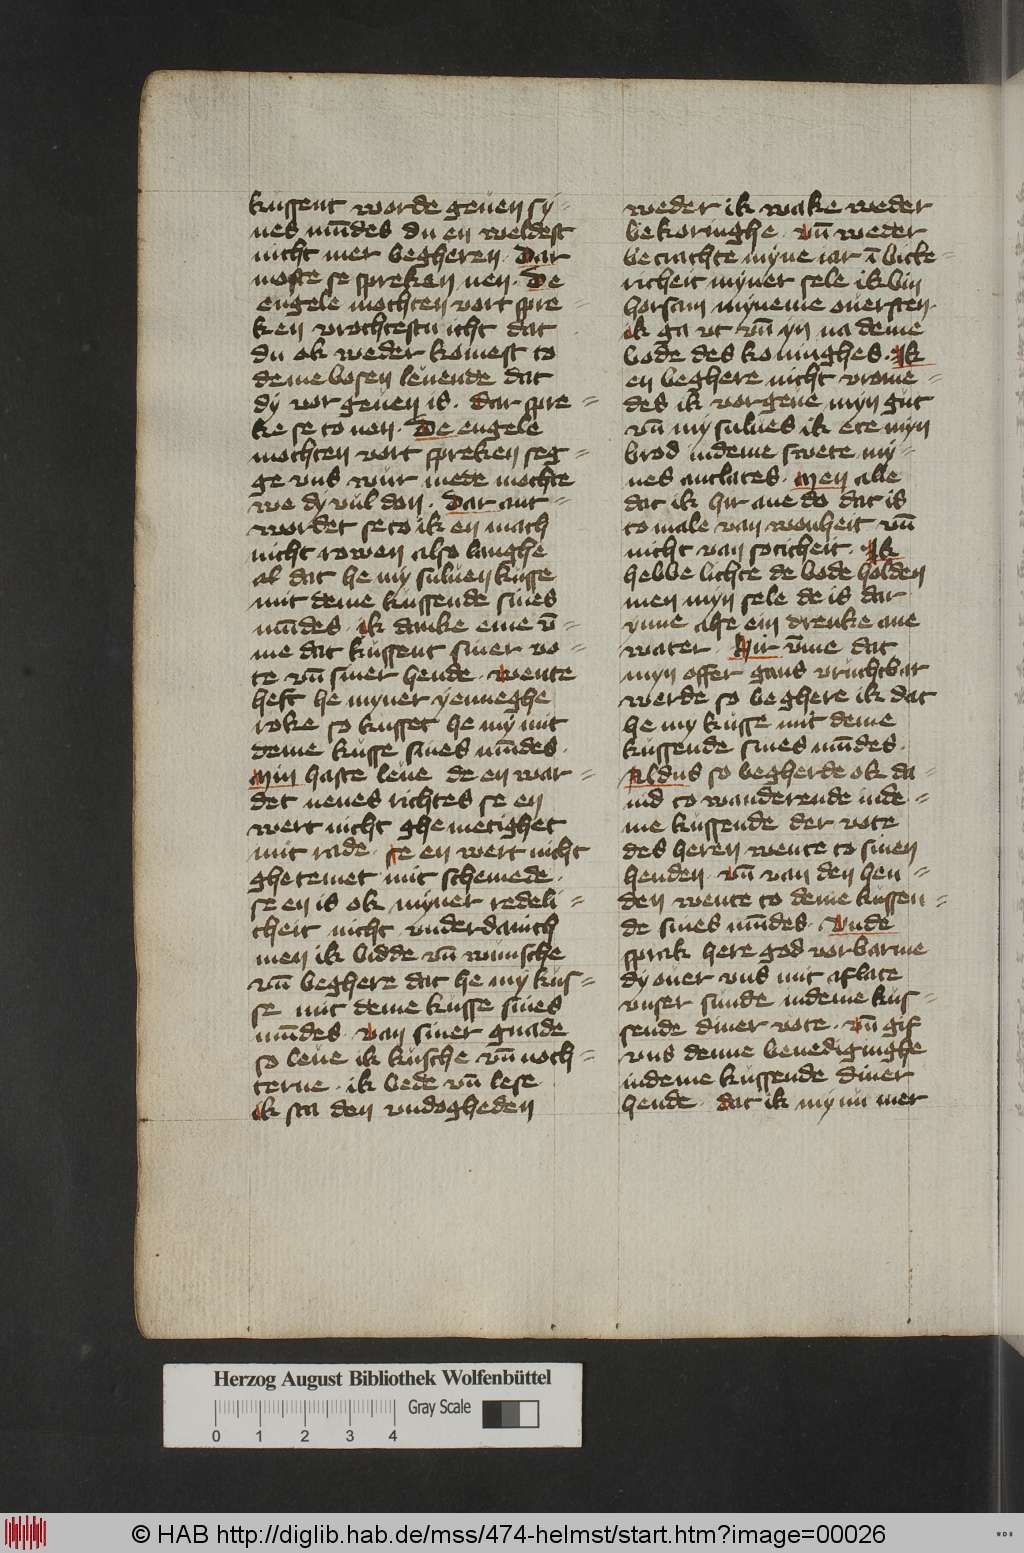 kussent worde geuen sy=
nes mūdes du en weldest
nicht mer begheren. Dar
moste se spreken neen. De
engele mochten vort spre=
ken vrochtestu icht dat
du ok weder komest to
deme bosen leuende dat
dy vor geuen is. dar spre=
ke se to nen. De engele
mochten vort spreken seg=
ge vns wur mede mochte
we dy vul don. Dar ant=
wordet se to ik en mach
nicht rowen also langhe
al dat he my suluen kusse
mit deme kussende sines
mūdes. ik danke eme v̄=
me dat kussent siner vo=
te vn̄ siner hende. wente
heft he myner yenneghe
roke so kusset he my mit
deme kusse sines mūdes.
Min haste leue de en war=
det nenes richtes se en
wert nicht ghe metighet
mit rade. se en wert nicht
ghetemet mit schemede.
se en is ok myner redeli=
cheit nicht vnderdanich
men ik bidde vn̄ wunsche
vn̄ beghere dat he my kus=
se mit deme kusse sines
mūdes. van siner gnade
so leue ik kusche vn̄ noch=
terne. ik bede vn̄ lese
ik sta den vndogheden
weder ik wake weder
bekoringhe. vn̄ weder
betrachte myne iar ī bicke=
richeit myner sele ik bin
horsam myneme ouersten.
ik ga vt vn̄ yn na deme
bode des koninghes. Ik
en beghere nicht vrome=
des ik vorgeue myn gut
vn̄ my sulues ik ete myn
brod indeme swete my=
nes antlates. Men alle
dat ik hir ane do dat is
to male van wonheit vn̄
nicht van soticheit. Ik
hebbe lichte de bode holden
men myn sele de is dar
ynne alse ein drenke ane
water. Hir v̄me dat
myn offer gans vruchtbar
werde so beghere ik dat
he my kusse mit deme
kussende sines mūdes.
Aldus so begherde ok da=
uid to wanderende inde=
me kussende der vote
des heren wente to sinen
henden. vn̄ van den hen=
den wente to deme kussen=
de sines mūdes. Vnde
sprak here god vorbarme
dy ouer vns mit aflate
vnser sunde indeme kus=
sende diner vote. vn̄ gif
vns denne benediginghe
indeme kussende diner
hende. dat ik my nu mer
Herzog August Bibliothek Wolfenbüttel
Gray Scale
0 1 2 3 4
© HAB http://diglib.hab.de/mss/474-helmst/start.htm?image=00026
WDB